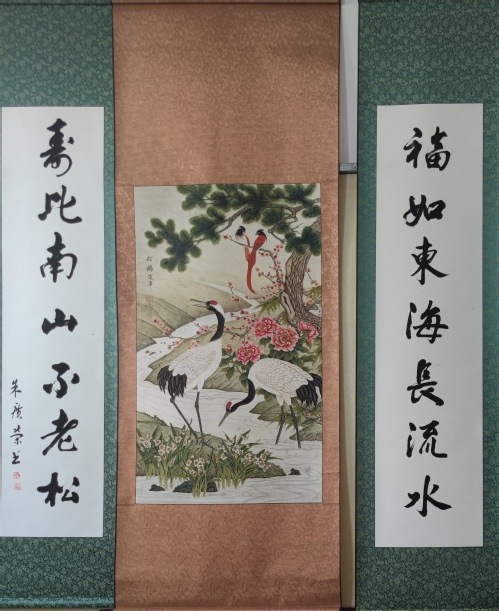 福如東海長流水
松鶴延年
壽比南山不老松
朱廣榮书